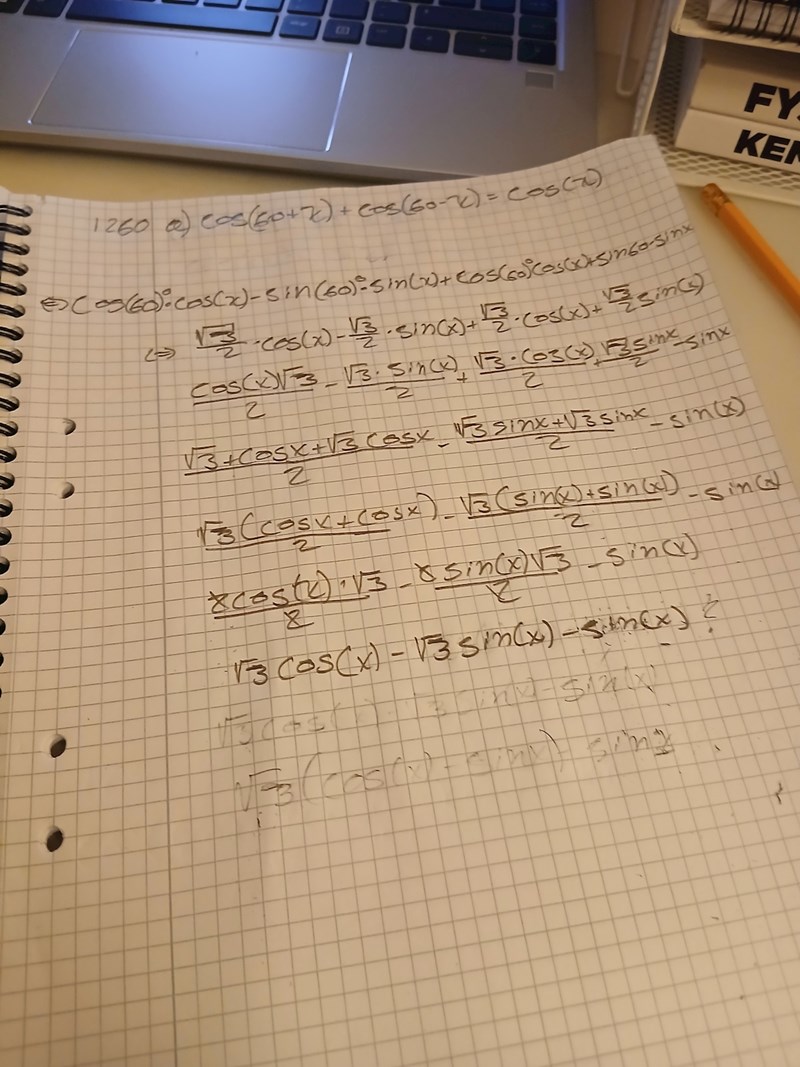 FY
KEM
1260 a) cos(60+x) + cos(60-x) = cos(x)
⇔ cos(60)°·cos(x) - sin(60)°·sin(x) + cos(60)°cos(x) + sin60·sinx
⇔ √3/2 · cos(x) - √3/2 · sin(x) + √3/2 · cos(x) + √3/2 sin(x)
cos(x)√3/2 - √3·sin(x)/2 + √3·cos(x)/2 + √3 sinx/2 - sinx
√3+cosx+√3 cosx/2 - √3 sinx+√3 sinx/2 - sin(x)
√3(cosx+cosx)/2 - √3(sin(x)+sin(x))/2 - sin(x)
2cos(x)·√3/2 - 2sin(x)√3/2 - sin(x)
√3 cos(x) - √3 sin(x) - sin(x) ?
√3 cos(x) - √3 sin(x) - sin(x)
√3 (cos(x) - sinx) - sinx